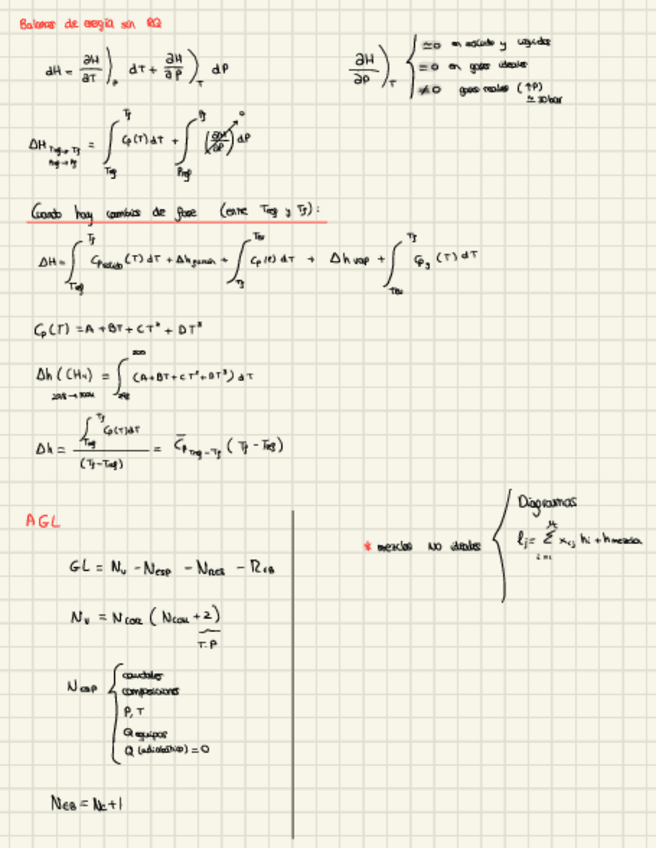 Balances de energía sin RQ
dH = ∂H/∂T)_P dT + ∂H/∂P)_T dP
∂H/∂P)_T { ≃0 en sólido y líquidos
=0 en gases ideales
≠0 gases reales (↑P)
≃10bar
ΔH Tref→Tf Pref→Pf = ∫_Tref^Tf Cp(T)dT + ∫_Pref^Pf (∂H/∂P)→0 dP
Cuando hay cambios de fase (entre Tref y Tf):
ΔH = ∫_Tref^Tf Cp sólido (T) dT + Δh fusión + ∫_Tf^Teb Cp(l) dT + Δh vap + ∫_Teb^Tf Cp,g (T) dT
Cp(T) = A + BT + CT² + DT³
Δh (CH₄) 298→300K = ∫_298^300 (A+BT+CT²+DT³) dT
Δh = ∫_Tref^Tf Cp(T)dT / (Tf-Tref) = C̅p Tref-Tf (Tf - Tref)
AGL
GL = Nv - Nesp - Nres - Reb
Nv = Ncor (Ncom + 2)
T.P
Nesp { caudales
composiciones
P, T
Q equipos
Q (adiabático) = 0
NEB = Nc+1
* mezclas NO ideales { Diagramas
lj = Σ_i=1^M xij hi + hmezcla